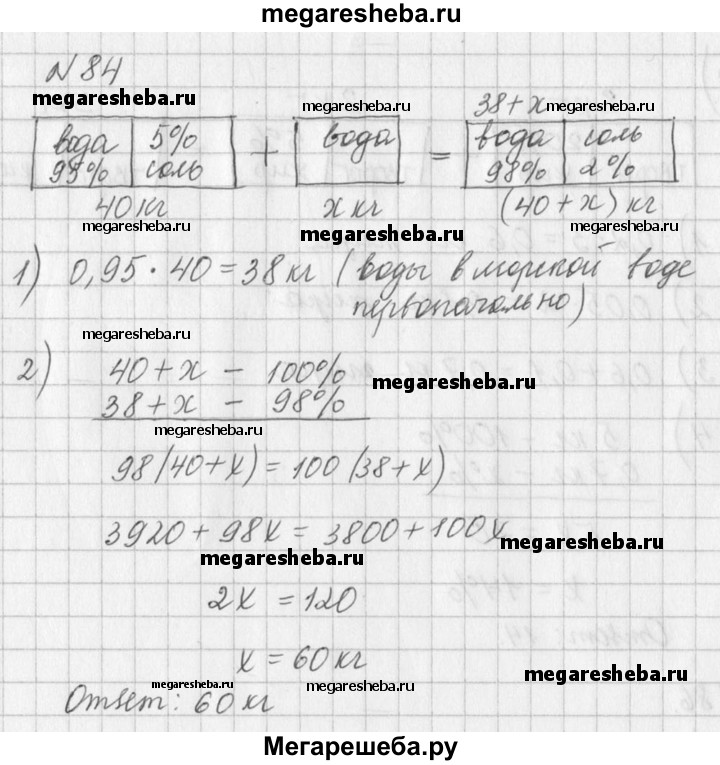 megaresheba.ru
N 84
megaresheba.ru megaresheba.ru 38+x megaresheba.ru
вода 95% | 5% соль + вода = вода 98% | соль 2%
40 кг x кг (40+x) кг
megaresheba.ru megaresheba.ru megaresheba.ru
1) 0,95 · 40 = 38 кг (воды в морской воде
первоначально)
megaresheba.ru
2) 40+x - 100%
megaresheba.ru
38+x - 98%
megaresheba.ru
98(40+x) = 100(38+x)
3920 + 98x = 3800 + 100x
megaresheba.ru
megaresheba.ru
2x = 120
x = 60 кг
megaresheba.ru megaresheba.ru megaresheba.ru
Ответ: 60 кг
Мегарешеба.ру